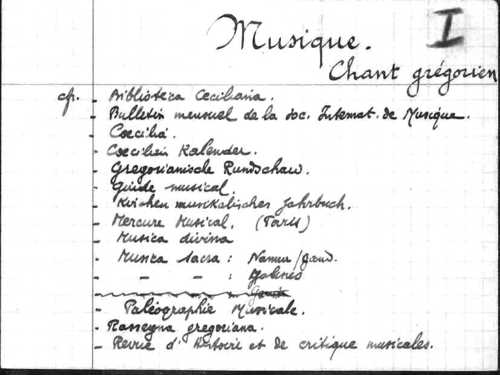 Musique. I
Chant grégorien
cfr. - Biblioteca Ceciliana.
- Bulletin mensuel de la soc. Internat. de Musique.
- Coecilia.
- Coecilien Kalender.
- Gregorianische Rundschau.
- Guide musical.
- Kirchen musikalisches Jahrbuch.
- Mercure Musical. (Paris)
- Musica divina
- Musica sacra: Namur/Gand.
- - - :
- Paléographie Musicale.
- Rassegna gregoriana.
- Revue d'Histoire et de critique musicales.